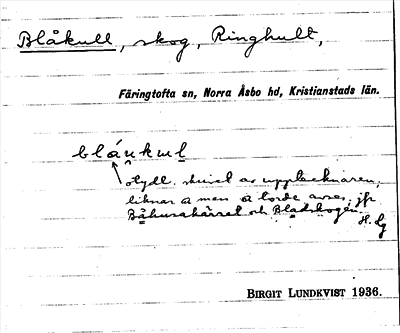 Blåkull, skog, Ringhult,
Färingtofta sn, Norra Åsbo hd, Kristianstads län.
bláukul
otydl. skrivet av upptecknaren;
liknar a men å torde avses, jfr
Båkusahåiset och Bladskogen.
H. Lg
BIRGIT LUNDKVIST 1936.